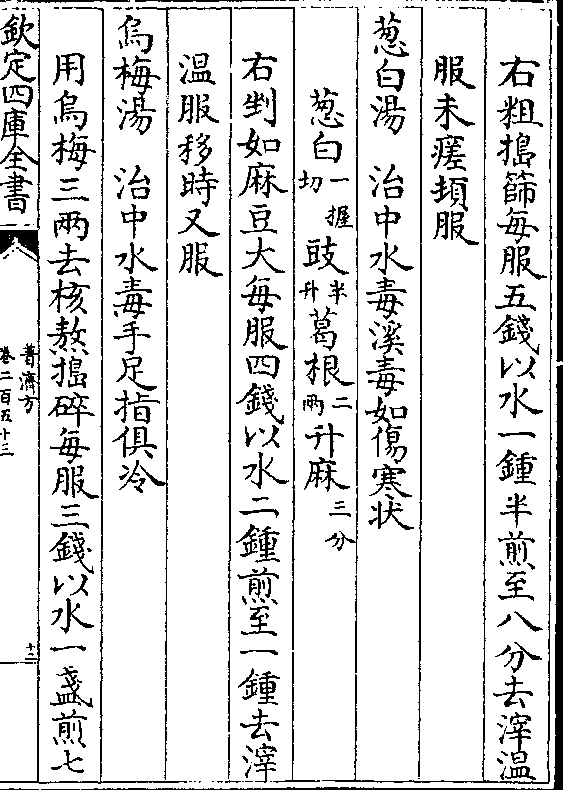 右粗搗篩每服五錢以水一鍾半煎至八分去滓温
服未瘥頓服
葱白湯　治中水毒溪毒如傷寒状
葱白一握切　豉半升　葛根二兩　升麻三分
右剉如麻豆大每服四錢以水二鍾煎至一鍾去滓
温服移時又服
烏梅湯　治中水毒手足指俱冷
用烏梅三兩去核熬搗碎每服三錢以水一盞煎七
欽定四庫全書
普濟方
卷二百五十三
十三